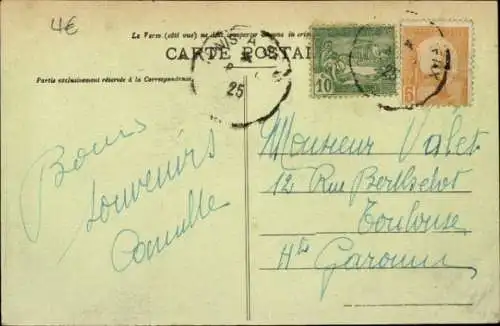 4€
La Verre (côté vue) ne doit comporter aucune inscrip
CARTE POSTALE
Partie exclusivement réservée à la Correspondance.
TUNIS
25
25
10
5
Bons
souvenirs
Camille
Monsieur Valet
12 Rue Berthelot
Toulouse
Hte Garonne